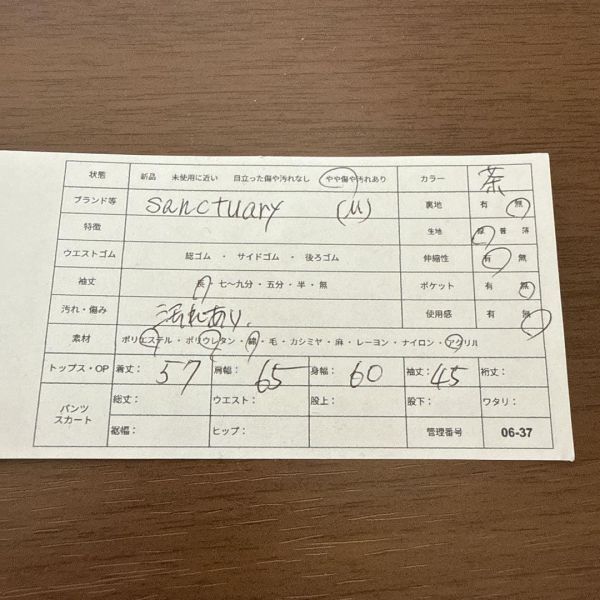 状態 新品 未使用に近い 目立った傷や汚れなし やや傷や汚れあり カラー 茶
ブランド等 sanctuary (M) 裏地 有 無
特徴 生地 厚 普 薄
ウエストゴム 総ゴム ・ サイドゴム ・ 後ろゴム 伸縮性 有 無
袖丈 長・七〜九分・五分・半・無 ポケット 有 無
汚れ・傷み 汚れあり. 使用感 有 無
素材 ポリエステル・ポリウレタン・綿・毛・カシミヤ・麻・レーヨン・ナイロン・アクリル
トップス・OP 着丈: 57 肩幅: 65 身幅: 60 袖丈: 45 裄丈:
パンツ スカート 総丈: ウエスト: 股上: 股下: ワタリ:
裾幅: ヒップ: 管理番号 06-37